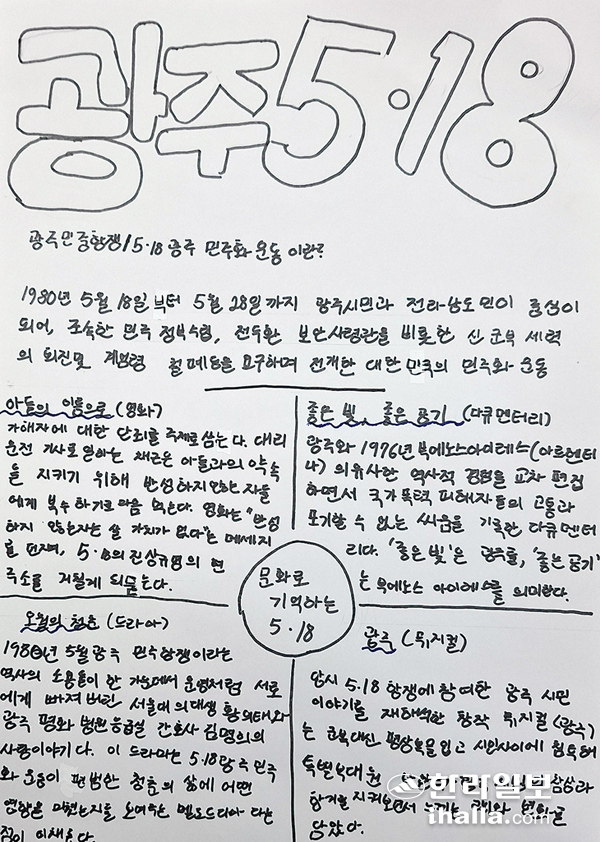 광주5·18
광주민중항쟁/5·18 광주 민주화 운동 이란?
1980년 5월 18일부터 5월 28일까지 광주시민과 전라남도민이 중심이
되어, 조속한 민주 정부수립, 전두환 보안사령관을 비롯한 신 군부 세력
의 퇴진및 계엄령 철폐등을 요구하며 전개한 대한민국의 민주화 운동
아들의 이름으로 (영화)
가해자에 대한 단죄를 주제로 삼는다. 대리
운전 기사로 일하는 채근은 아들과의 약속
을 지키기 위해 반성하지않는 자들
에게 복수하기로 마음 먹는다. 영화는 "반성
하지 않는자는 살 가치가 없다"는 메세지
를 던지며, 5·18의 진상규명의 현
주소를 거칠게 되묻는다.
좋은 빛, 좋은 공기 (다큐멘터리)
광주와 1976년 부에노스아이레스(아르헨티
나)의 유사한 역사적 경험을 교차 편집
하면서 국가폭력 피해자들의 고통과
포기할 수 없는 싸움을 기록한 다큐멘터
리다. '좋은 빛'은 광주를, '좋은 공기'
는 부에노스 아이레스를 의미한다.
문화로
기억하는
5·18
오월의 청춘 (드라마)
1980년 5월 광주 민주항쟁이라는
역사의 소용돌이 한 가운데서 운명처럼 서로
에게 빠져버린 서울대 의대생 황희태와
광주 평화 병원 응급실 간호사 김명희의
사랑이야기다. 이 드라마는 5·18 광주 민주
화 운동이 평범한 청춘의 삶에 어떤
영향을 미쳤는지를 보여주는 멜로드라마 라는
점이 이채롭다.
광주 (뮤지컬)
당시 5·18 항쟁에 참여한 광주 시민
이야기를 재해석한 창작 뮤지컬 (광주)
는 군복대신 평상복을 입고 시민사이에 침투해
특별부대원
항거를 지켜보면서 느끼는 변화를
담았다.
한라일보
ihalla.com